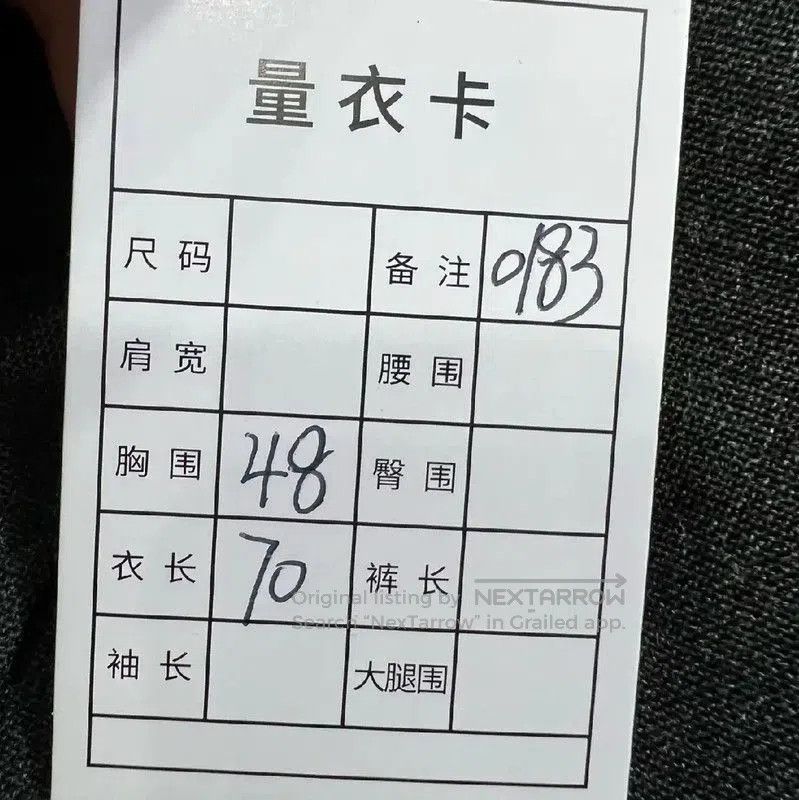 量衣卡
尺码 备注 0183
肩宽 腰围
胸围 48 臀围
衣长 70 裤长
Original listing by NEXTARROW
Search "NexTarrow" in Grailed app.
袖长 大腿围